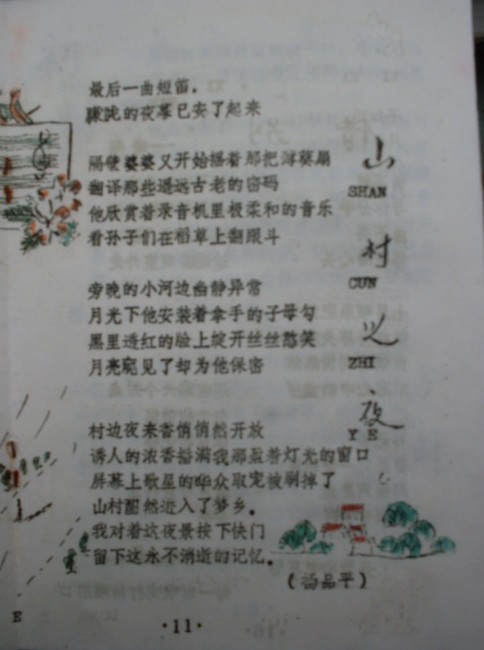 山村之夜
SHAN CUN ZHI YE
最后一曲短笛。
朦胧的夜幕已安了起来
隔壁婆婆又开始摇着那把蒲葵扇
翻译那些遥远古老的密码
他欣赏着录音机里极柔和的音乐
看孙子们在稻草上翻跟斗
旁晚的小河边幽静异常
月光下他安装着拿手的子母勾
黑里透红的脸上绽开丝丝憨笑
月亮窥见了却为他保密
村边夜来香悄悄然开放
诱人的浓香溢满我那盈着灯光的窗口
屏幕上歌星的哗众取宠被剁掉了
山村酣然进入了梦乡。
我对着这夜景按下快门
留下这永不消逝的记忆。
（汤品平）
E
·11·